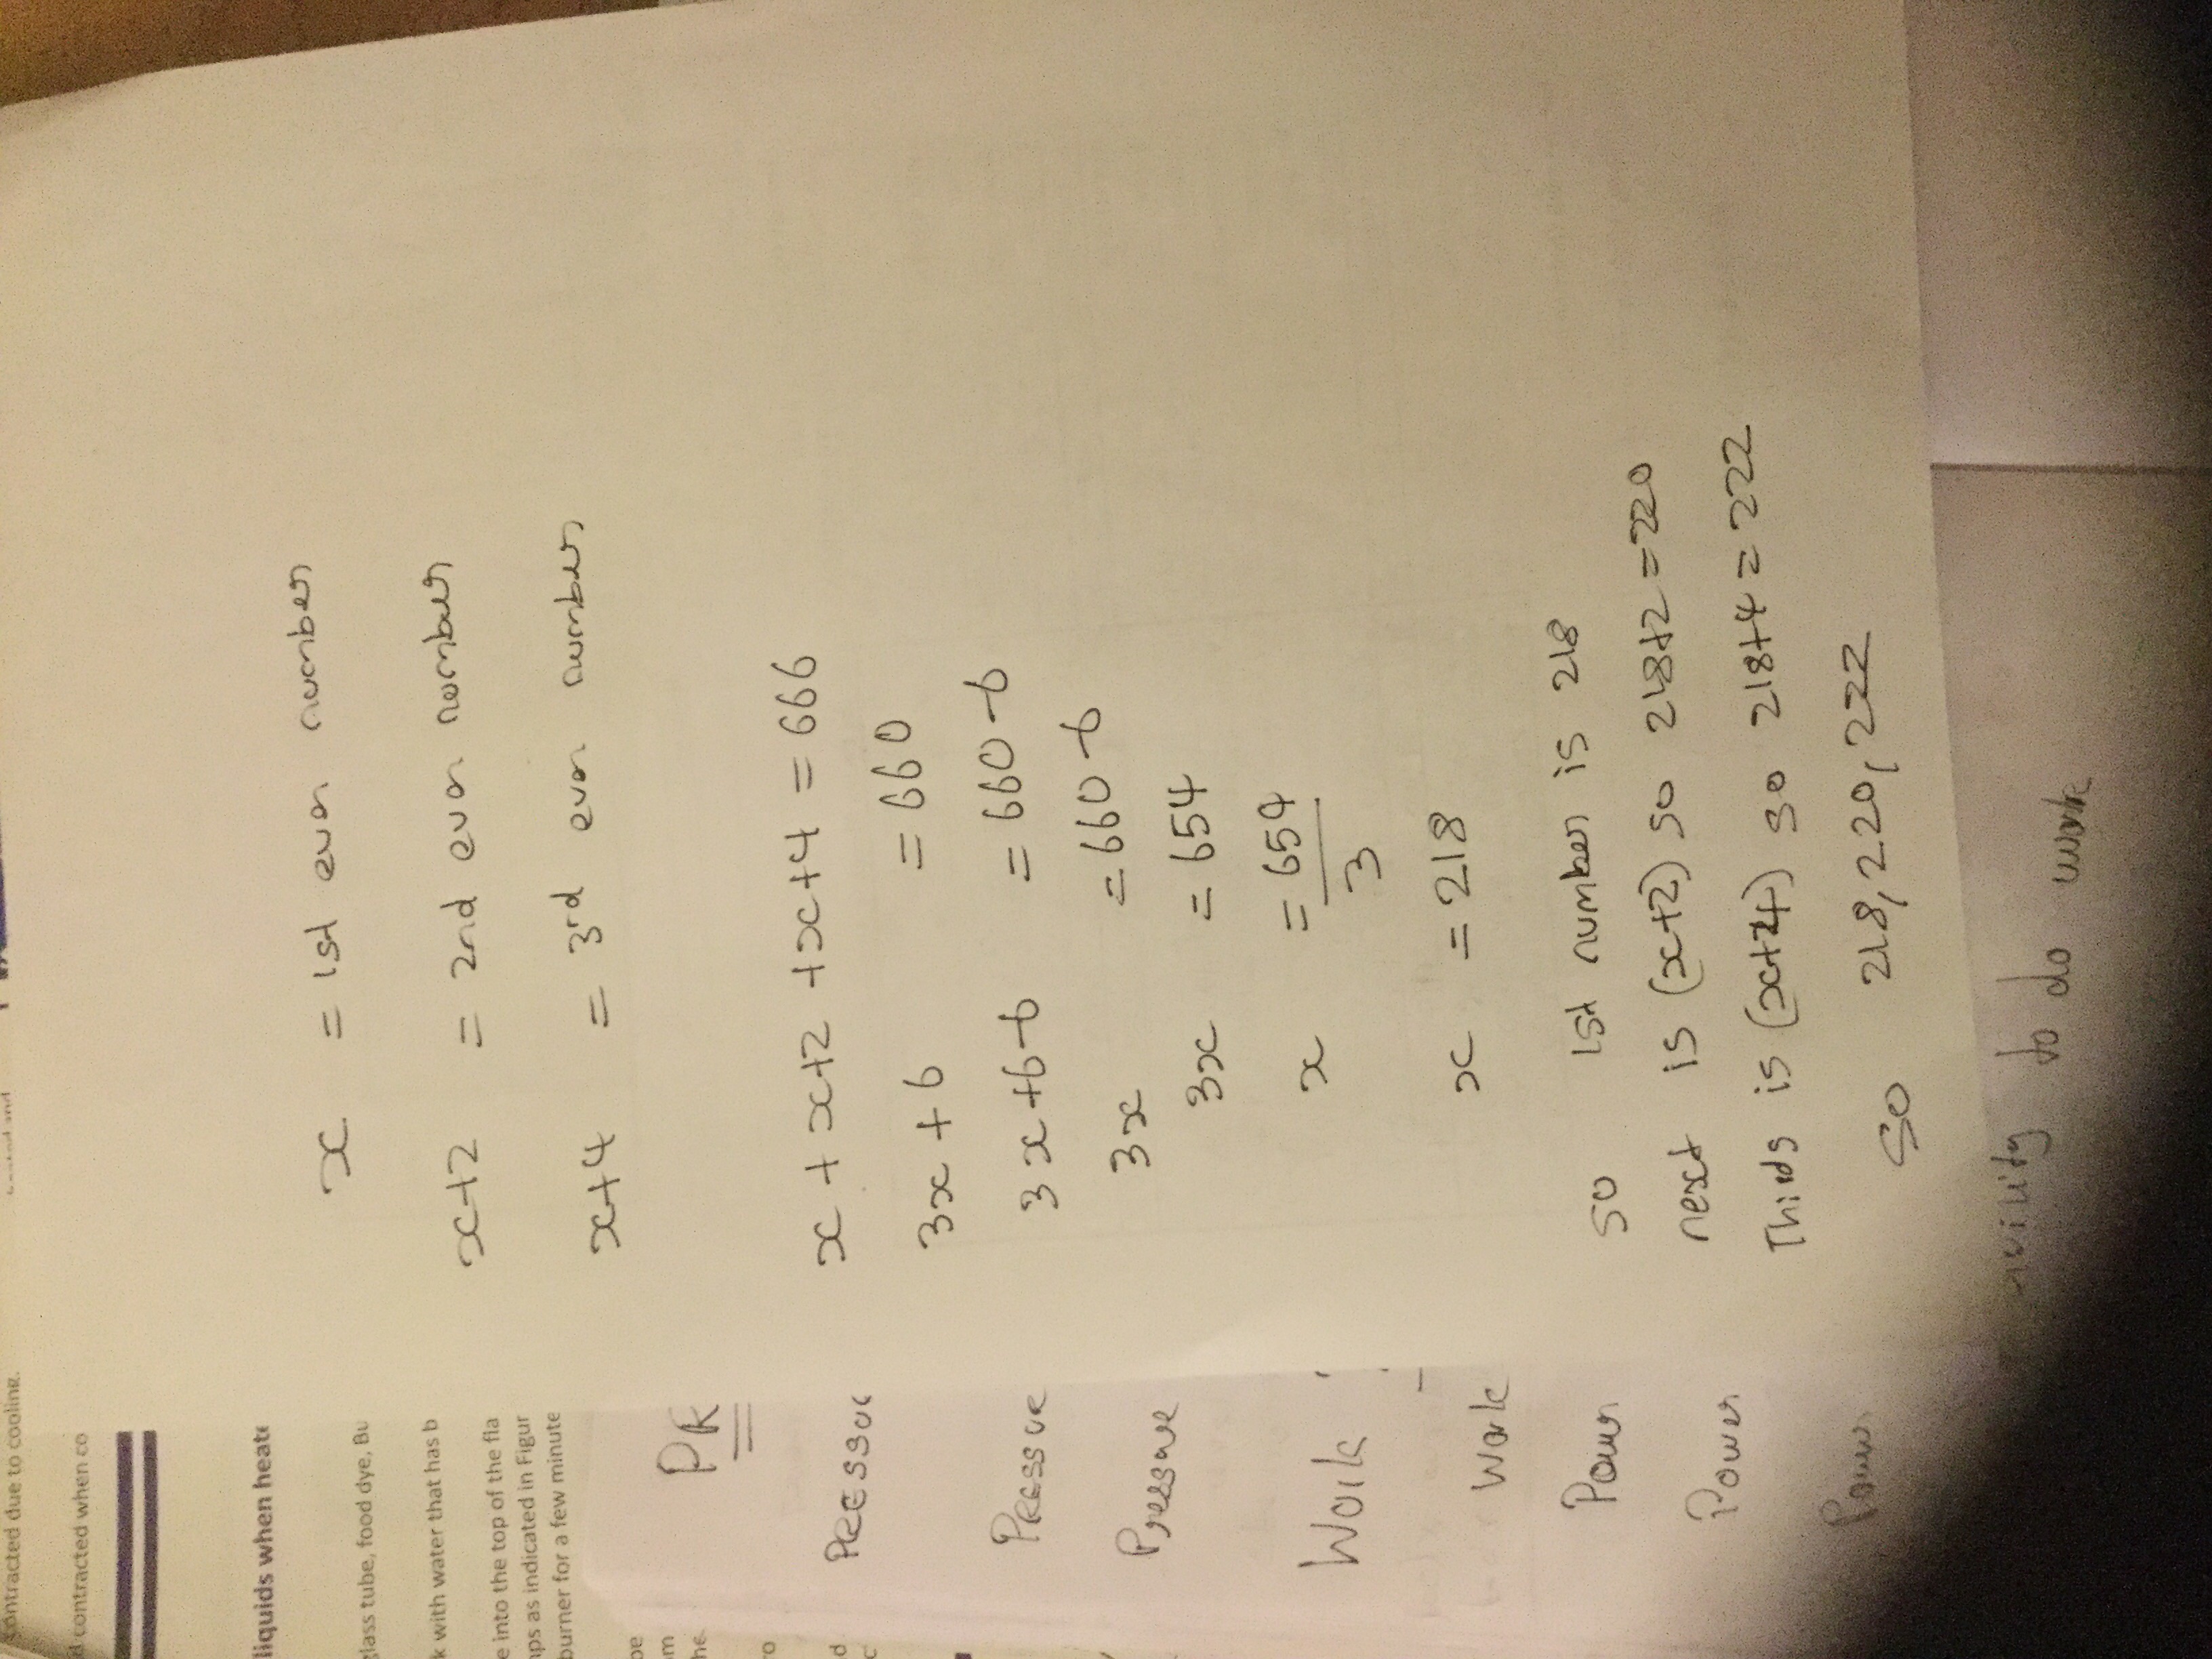 x = 1st even number
x+2 = 2nd even number
x+4 = 3rd even number
x + x+2 + x+4 = 666
3x + 6 = 660
3x + 6 - 6 = 660 - 6
3x = 660 - 6
3x = 654
x = 654/3
x = 218
so 1st number is 218
next is (x+2) so 218+2 = 220
Third is (x+4) so 218+4 = 222
so 218, 220, 222
to do work
contracted due to cooling.
d contracted when co
liquids when heate
glass tube, food dye, Bu
k with water that has b
e into the top of the fla
nps as indicated in Figur
burner for a few minute
PR
PRESSU
PRESSUR
Pressure
Work
Work
Power
Power
Power